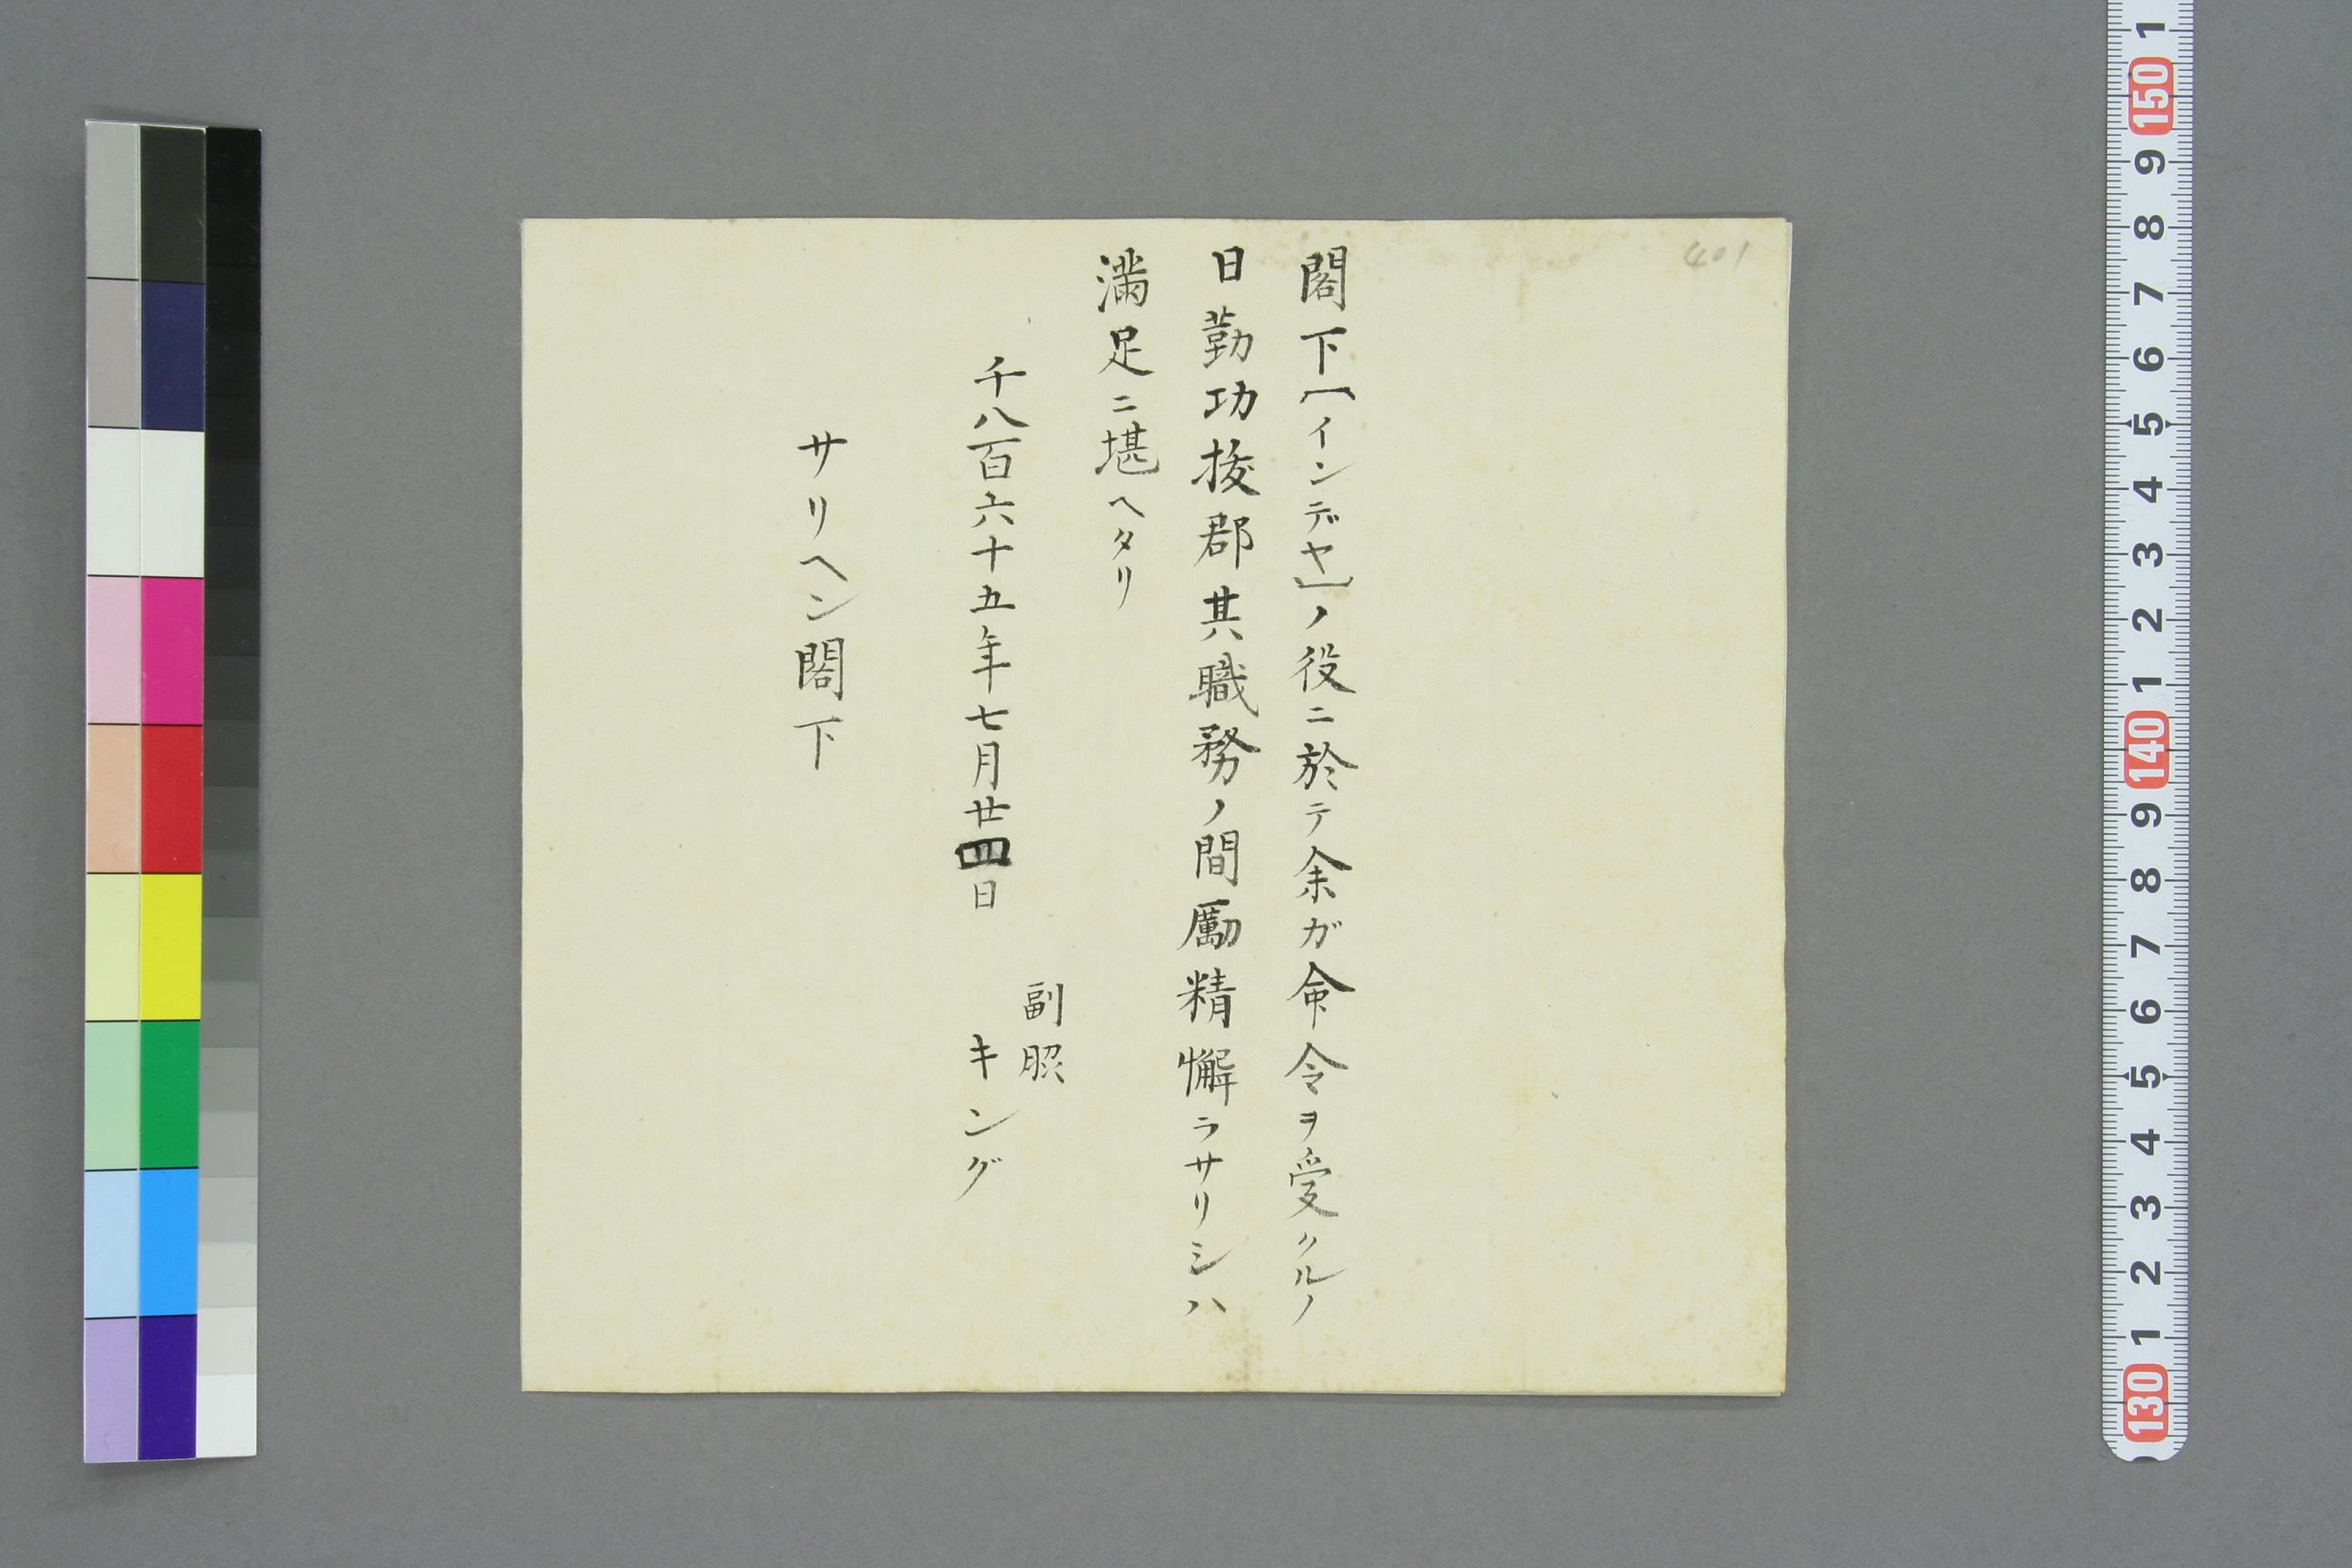 401
閣下〔インデヤ〕ノ役ニ於テ余ガ命令ヲ受クルノ
日勤功抜郡其職務ノ間勵精懈ラサリシハ
満足ニ堪ヘタリ
副照
千八百六十五年七月廿四日 キング
サリヘン閣下
1 150 9 8 7 6 5 4 3 2 1 140 9 8 7 6 5 4 3 2 1 130